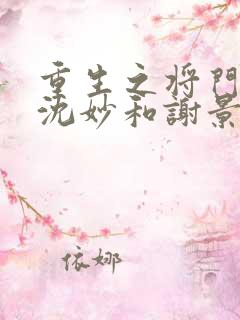 重生之将門
沈妙和謝景
依娜